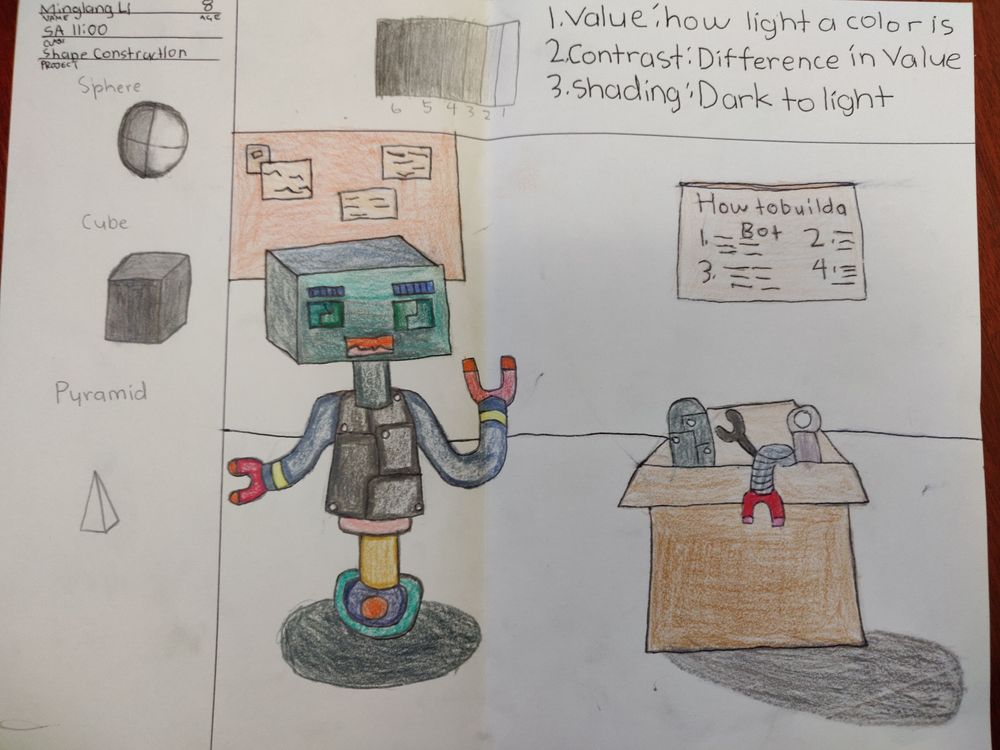 Minglang Li 8
NAME AGE
SA 11:00
CLASS
Shape Construction
PROJECT
Sphere
Cube
Pyramid
6 5 4 3 2 1
1. Value: how light a color is
2. Contrast: Difference in Value
3. Shading: Dark to light
How to build a
Bot
1. 2.
3. 4.